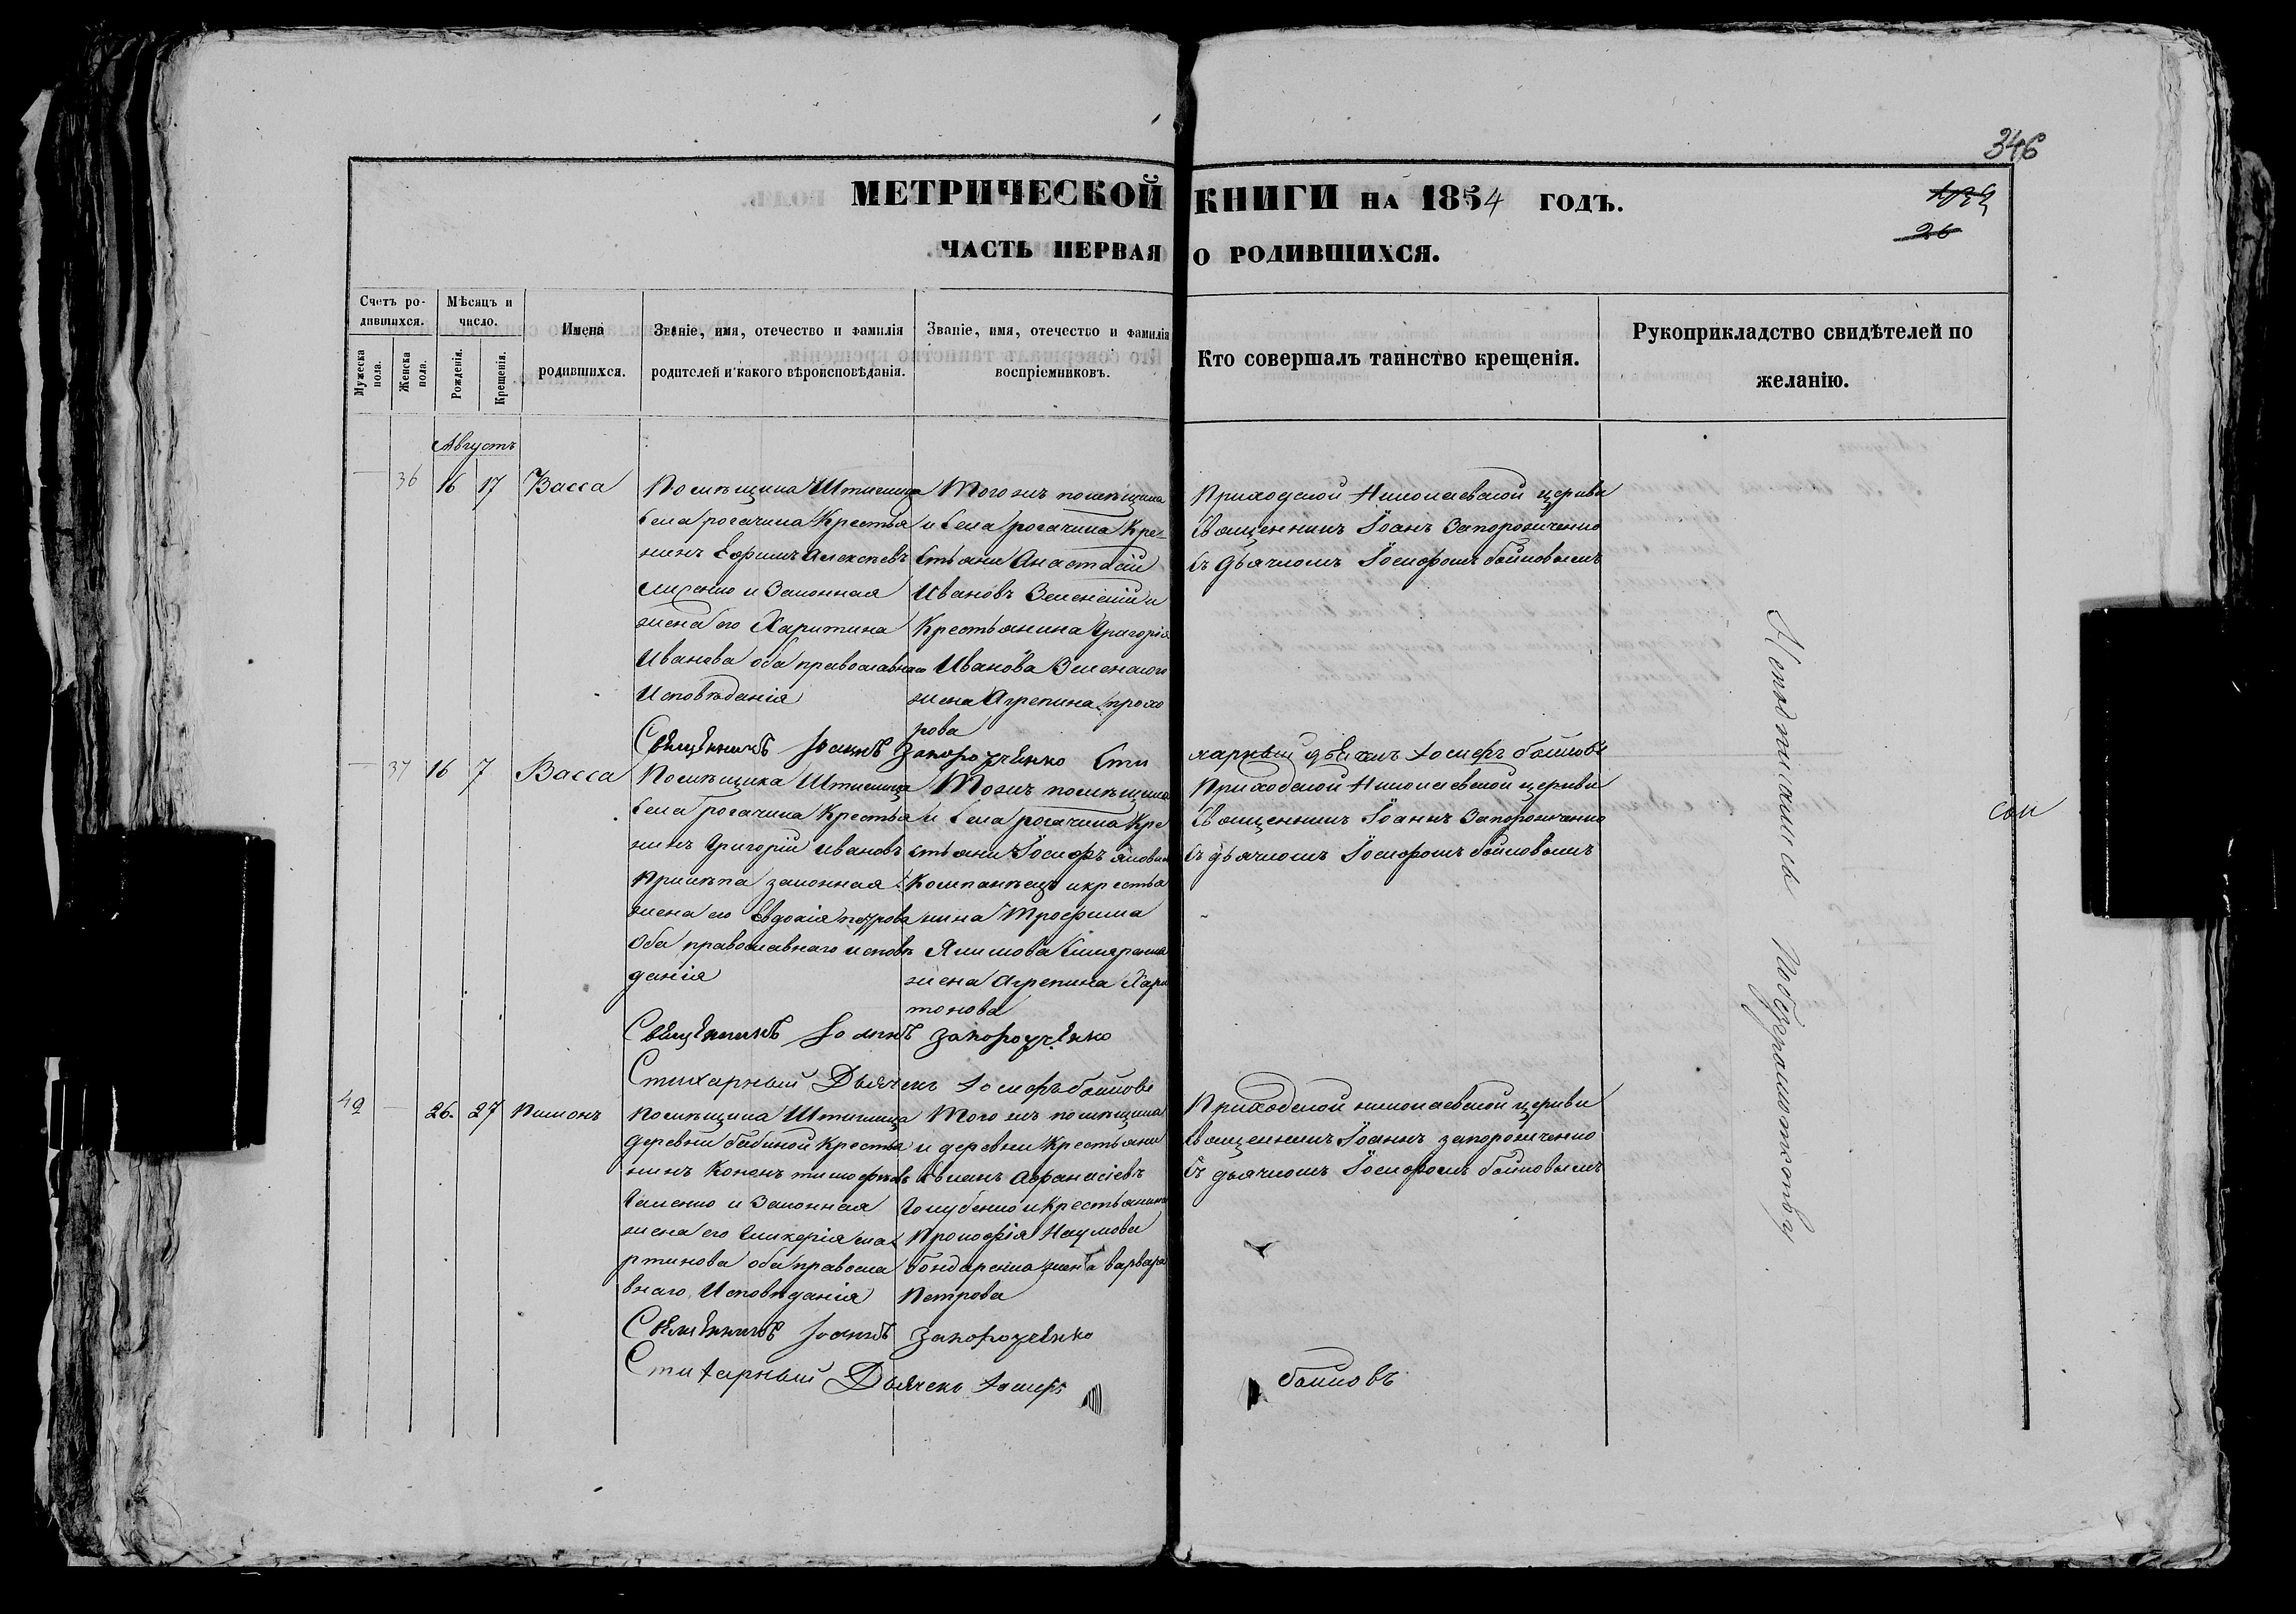 346
МЕТРИЧЕСКОЙ КНИГИ НА 1854 ГОДЪ.
26
ЧАСТЬ ПЕРВАЯ О РОДИВШИХСЯ.
Счетъ родившихся.
Мужеска пола.
Женска пола.
Мѣсяцъ и число.
Рожденія.
Крещенія.
Имена родившихся.
Званіе, имя, отечество и фамилія родителей и какого вѣроисповѣданія.
Званіе, имя, отечество и фамилія воспріемниковъ.
Кто совершалъ таинство крещенія.
Рукоприкладство свидѣтелей по желанію.
Августъ
36 16 17 Васса
Помѣщика Штиглица
села рогачика Крестья
нинъ Ефимъ Алексѣевъ
и Законная
жена его Харитина
Иванова оба православнаго
Исповѣданія
Того жъ помѣщика
и села рогачика Кре-
стьяни Анастасій
Ивановъ Зеленскій и
Крестьянина Григорія
Иванова Зеленскаго
жена Агрепина прохо
рова
Приходской Николаевской церкви
Священникъ Іоанъ Запорожченко
съ дьячкомъ Іосифомъ бойковымъ
Священникъ Іоаннъ Запорожченко Сти
харный дьячекъ Іосифъ бойковъ
37 16 7 Васса
Помѣщика Штиглица
села рогачика Крестья
нинъ Григорій Ивановъ
законная
жена его Евдокія петрова
Оба православнаго исповѣ
данія
Тожъ помѣщика
и села рогачика Кре
стьяни Іосифъ
Компанѣецъ и крестья
нина Трофима
Якимова
жена Агрепина Хари
тонова
Приходской Николаевской церкви
Священникъ Іоаннъ Запорожченко
съ дьячкомъ Іосифомъ бойковымъ
Священникъ Іоаннъ Запорожченко
Стихарный Дьячекъ Іосифъ бойковъ
49 26. 27 Пимонъ
Помѣщика Штиглица
деревни бабиной Крестья
нинъ Кононъ тимофѣевъ
и Законная
жена его Гликерія ма
ртинова оба правосла
внаго Исповѣданія
Того жъ помѣщика
и деревни Крестьяни
Афанасіевъ
Голубенко и Крестьянина
Прокофія Наумова
бондаренка жена варвара
Петрова
Приходской николаевской церкви
Священникъ Іоаннъ запорожченко
съ дьячкомъ Іосифомъ бойковымъ
Священникъ Іоаннъ Запорожченко
Стихарный Дьячекъ Іосифъ бойковъ